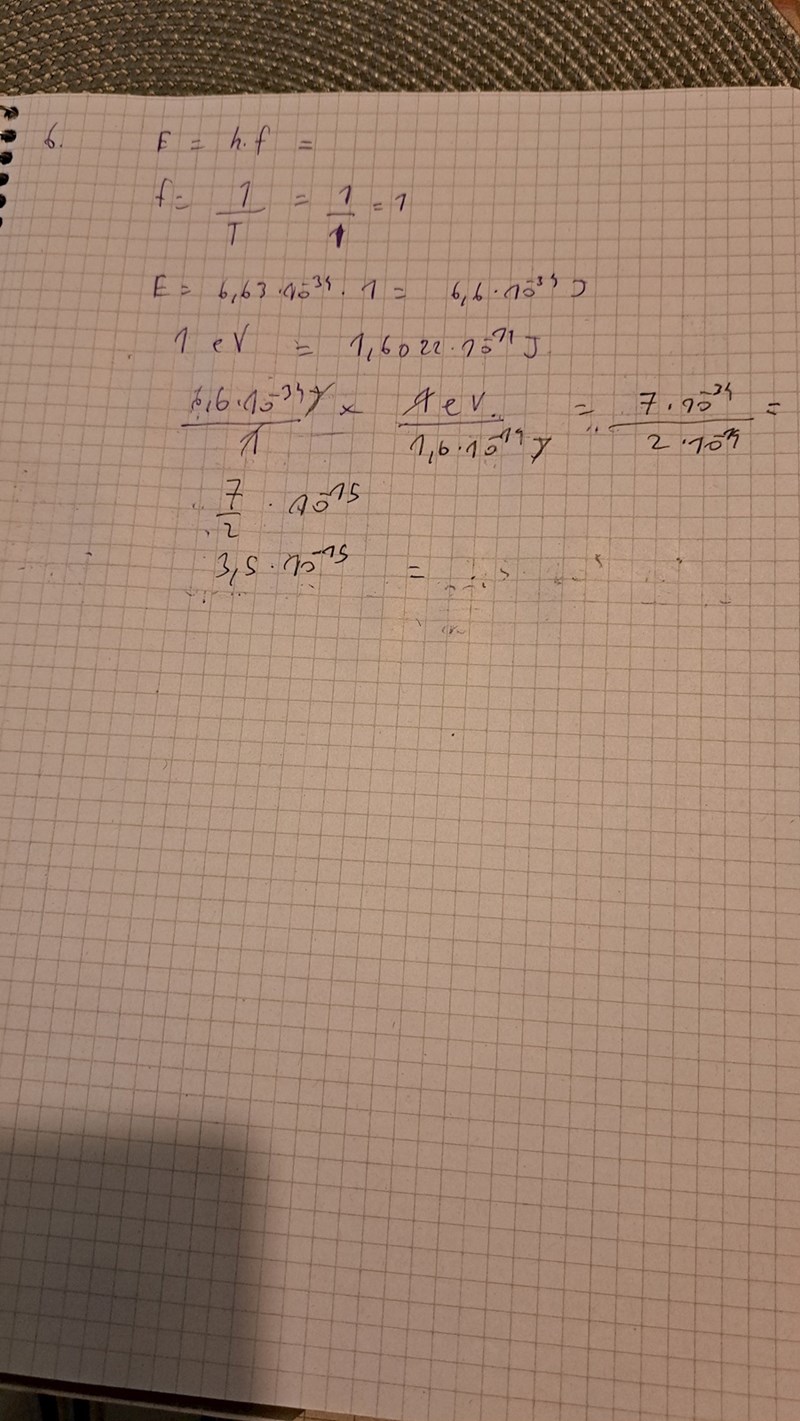 6. E = h.f =
f = 1/T = 1/1 = 1
E = 6,63 · 10^-34 · 1 = 6,6 · 10^-34 J
1 eV = 1,6022 · 10^-19 J
6,6 · 10^-34 J / 1 × 1 eV / 1,6 · 10^-19 J = 7 · 10^-34 / 2 · 10^-19 =
7/2 · 10^-15
3,5 · 10^-15 =